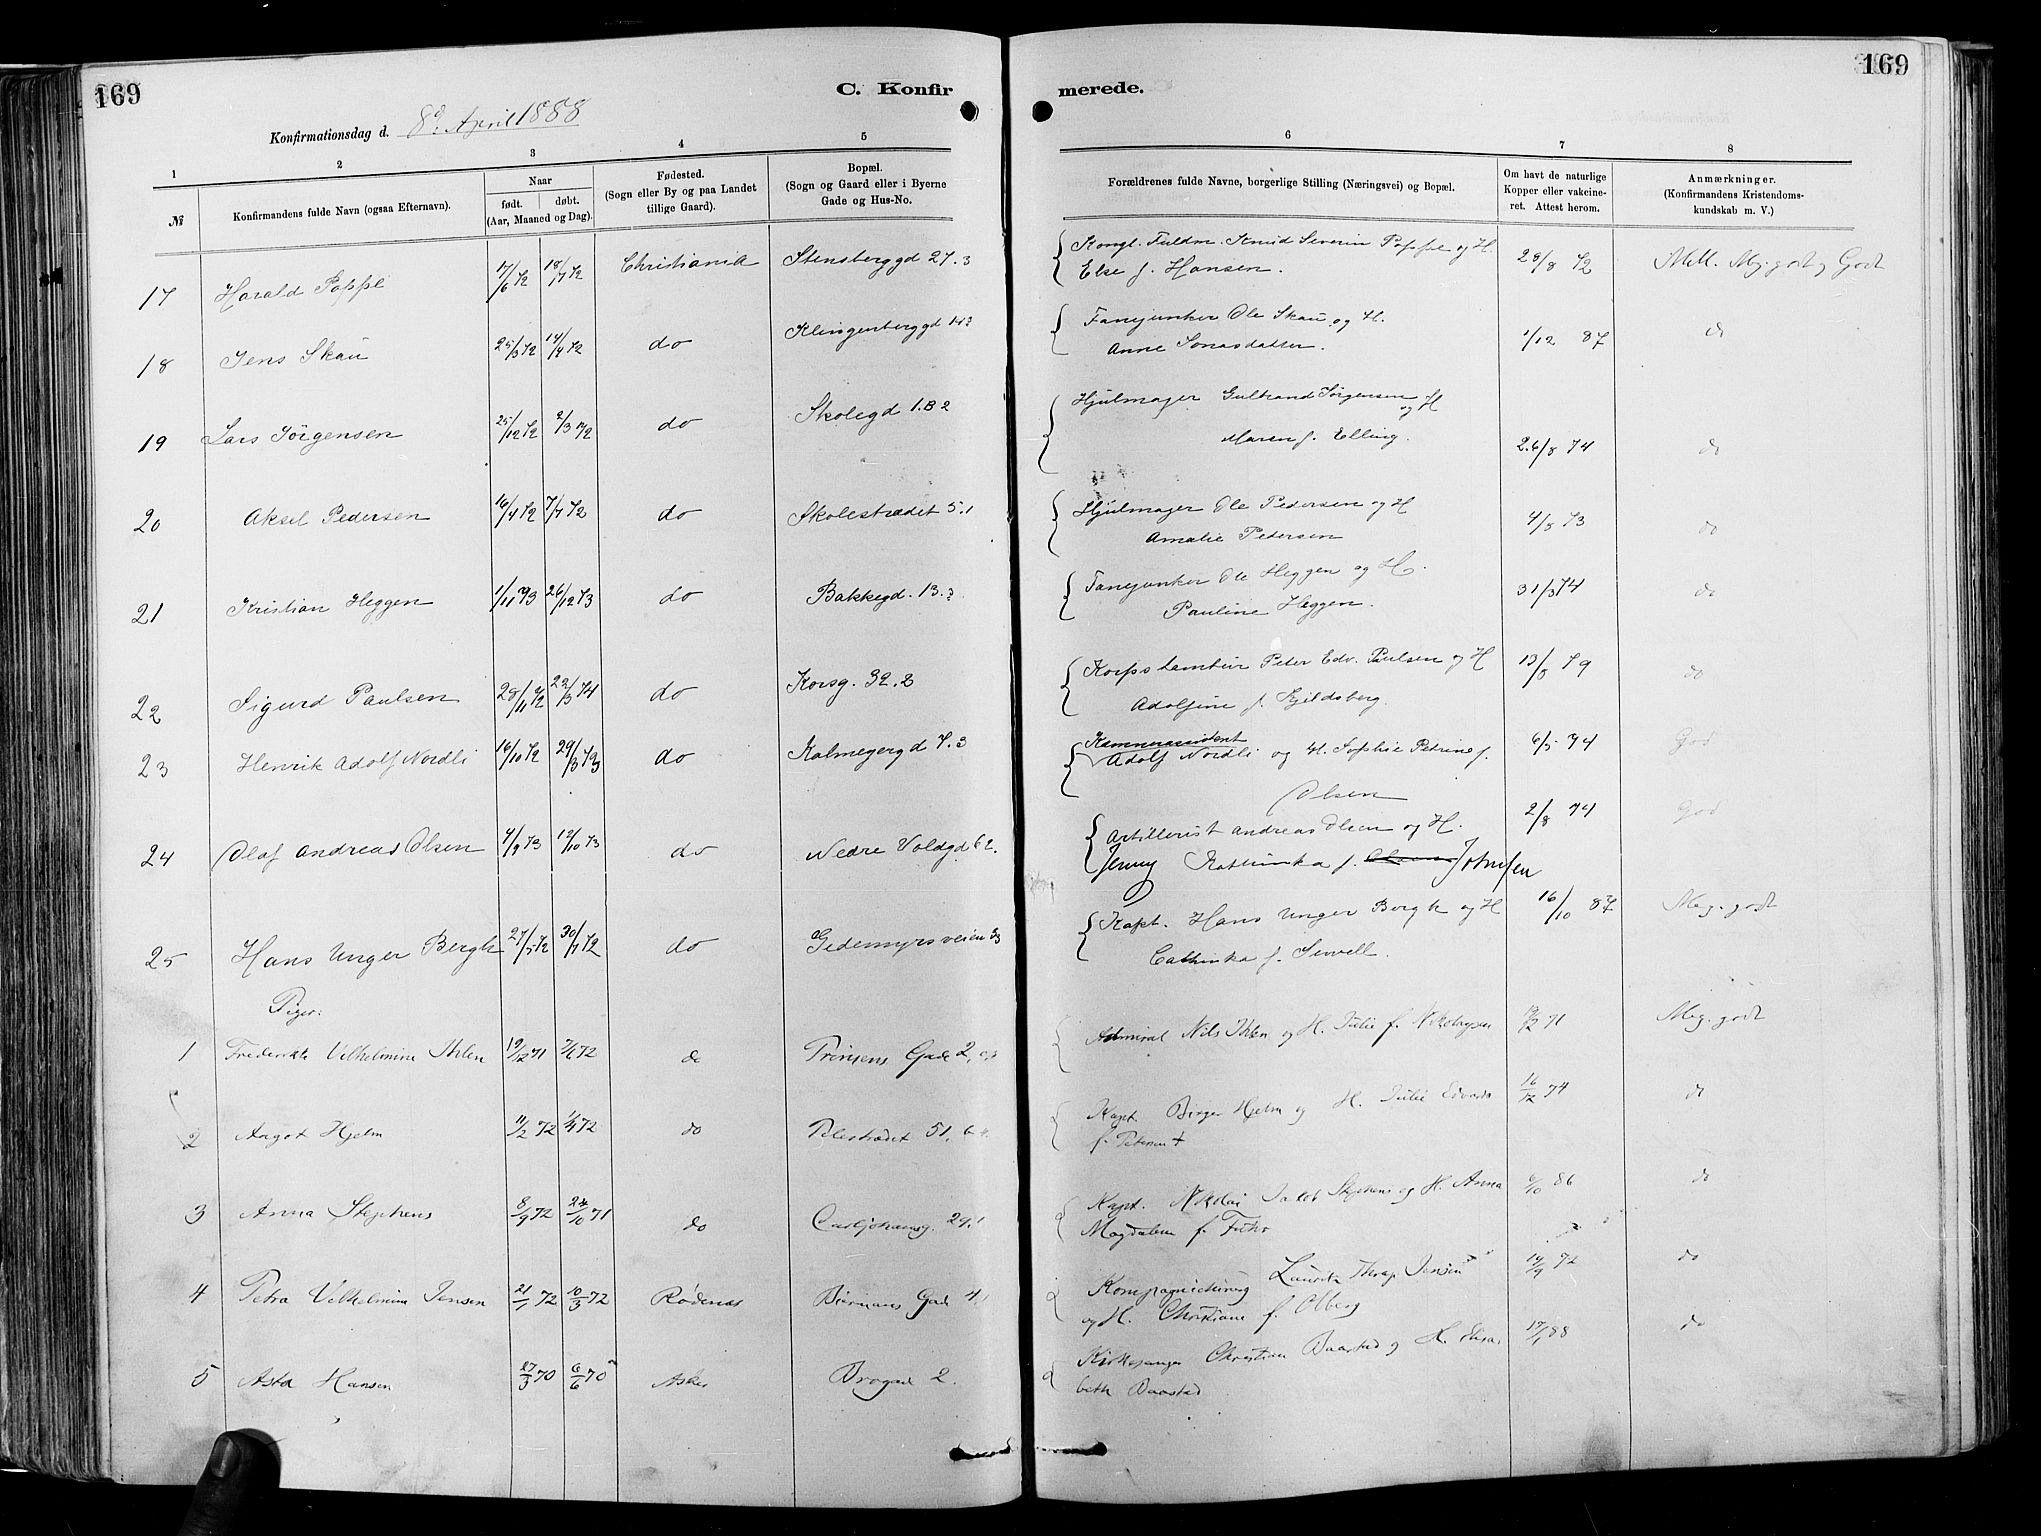 169
C. Konfirmerede.
169
Konfirmationsdag d. 8d April 1888
1 2 3 4 5 6 7 8
№
Konfirmandens fulde Navn (ogsaa Efternavn).
Naar
født. døbt.
(Aar, Maaned og Dag).
Fødested.
(Sogn eller By og paa Landet
tillige Gaard).
Bopæl.
(Sogn og Gaard eller i Byerne
Gade og Hus-No.
Forældrenes fulde Navne, borgerlige Stilling (Næringsvei) og Bopæl.
Om havt de naturlige
Kopper eller vakcine-
ret. Attest herom.
Anmærkninger.
(Konfirmandens Kristendoms-
kundskab m. V.)
17 Harald Poppe 17/6 72 18/7 72 Christiania Stensberggd 27.3 Kongl. Fuldm. Knud Severin Poppe og H. 28/8 72 Mell. Meg. godt og Godt
Else f. Hansen.
18 Jens Skau 25/3 72 14/4 72 do Klingenberggd Fanejunker Ole Skau og H. 1/12 87 do
Anne Jonasdatter.
19 Lars Jörgensen 25/12 72 2/3 72 do Skolegd 1.B 2 Hjulmager Gulbrand Jörgensen og H 26/8 74 do
Maren f. Elling.
20 Aksel Pedersen 16/4 72 7/7 72 do Skolestrædet 5.1 Hjulmager Ole Pedersen og H 4/8 73 do
Amalie Pedersen
21 Kristian Heggen 1/11 73 26/12 73 do Bakkegd. 13.3 Fanejunker Ole Heggen og H. 31/3 74 do
Pauline Heggen.
22 Sigurd Paulsen 28/11 72 22/3 74 do Korsg. 32.2 Korps Peter Edv. Paulsen og H 13/8 79 do
Adolfine f. Kjildsberg.
23 Henrik Adolf Nordli 16/10 72 29/3 73 do Kalmeyergd 7.3 Adolf Nordli og H. Sophie Petrine f. 6/5 74 God
Olsen
24 Olaf Andreas Olsen 4/9 73 12/10 73 do Nedre Voldgd 62. Artillerist Andreas Olsen og H. 2/8 74 God
Jenny Kathinka f. Johnsen
25 Hans Unger Bergh 27/5 72 30/7 72 do Gedemyrsveien Kapt. Hans Unger Bergh og H 16/10 87 Meg. godt
Cathinka f. Sewell.
Piger:
1 Frederikke Vilhelmine Ihlen 19/12 71 7/6 72 do Prinsens Gade 2, Admiral Nils Ihlen og H. Julie f. Nikolaysen 71 Meg. godt
2 Aagot Hjelm 11/2 72 1/4 72 do Pilestrædet 51, Kapt. Birger Hjelm og H. Julie Edvarda 16/12 74 do
f. Petersen +
3 Anna Stephens 8/9 72 24/10 71 do Carljohansg. 29.1 Kapt. Nikolai Jakob Stephens og H. Anna 6/10 86 do
Magdalena f. Fuhr
4 Petra Vilhelmine Jensen 21/1 72 10/3 72 Rødenæs Biermans Gade 4. Kompagnichirurg Lauritz Therap Jensen 14/9 72 do
og H. Christiane f. Olberg
5 Asta Hansen 27/3 70 6/6 70 Asker Brogade 2. Kirkesanger Christian Baastad og H. Elisa- 17/1 88 do
beth Baastad